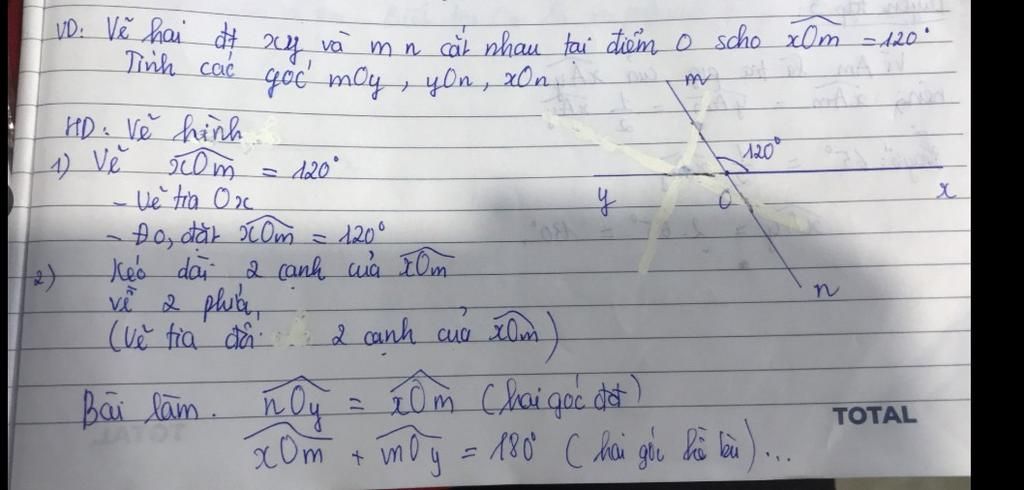 VD: Vẽ hai đt xy và mn cắt nhau tại điểm O scho xOm = 120°
Tính các góc mOy, yOn, xOn
HD: Vẽ hình
1) Vẽ xOm = 120°
- Vẽ tia Ox
- Đo, đặt xOm = 120°
2) Kéo dài 2 cạnh của xOm
về 2 phía,
(Vẽ tia đối 2 cạnh của xOm)
m
120°
y
O
x
n
Bài làm. nOy = xOm (hai góc đđ)
xOm + mOy = 180° (hai góc kề bù)...
TOTAL